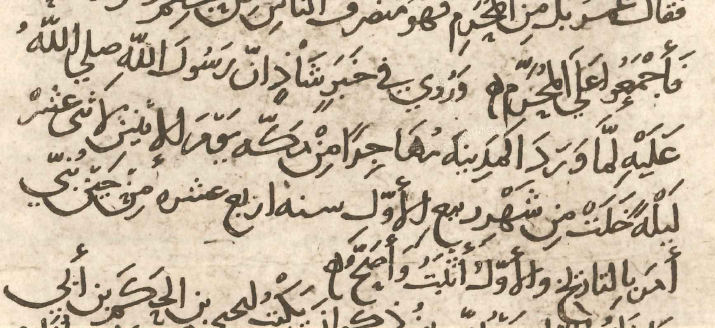 فقال عمر بل من المحرم فهو منصرف الناس من
فَأَجْمَعُوا عَلَى المُحَرَّمِ وَرُوِيَ فِي خَبَرٍ شَاذٍ انّ رَسُولَ اللّهِ صلى اللّهُ
عَلَيْهِ لَمَّا وَرَدَ المَدِينَة مُهَاجِرًا مِنْ مَكّة يَوْمَ الاثنين لاثنتي عَشْرَة
لَيْلَةً خَلَتْ مِن شَهْرِ ربيع الأَوَّل سنه اربع عشره مِن حِينَ نُبِّي
أَمَرَ بِالتاريخ والأَوَّلُ أَثْبَتُ وَأَصَحُّ
بن الحَكَم بن أبي